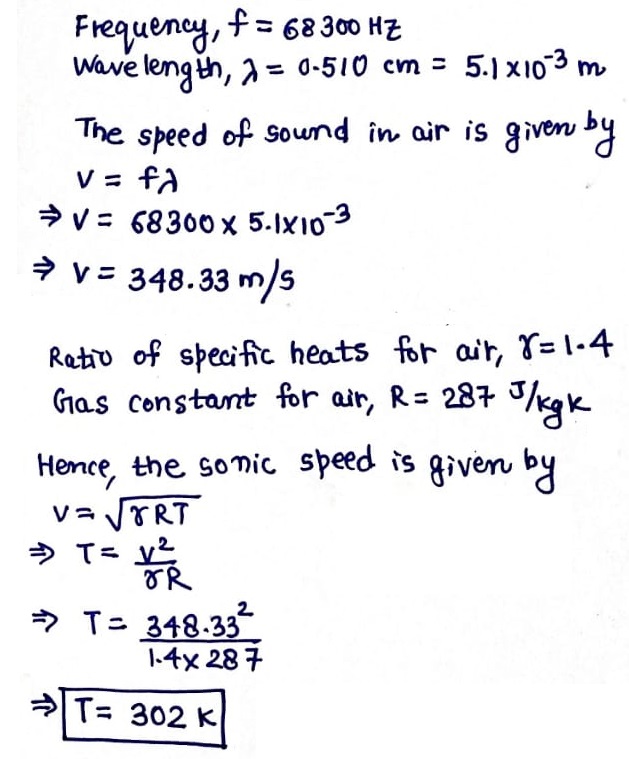 Frequency, f = 68300 HZ
Wavelength, λ = 0.510 cm = 5.1 x 10⁻³ m
The speed of sound in air is given by
V = fλ
⇒ V = 68300 x 5.1x10⁻³
⇒ V = 348.33 m/s
Ratio of specific heats for air, γ = 1.4
Gas constant for air, R = 287 J/kgK
Hence, the sonic speed is given by
V = √γRT
⇒ T = V²/γR
⇒ T = 348.33²/1.4x287
⇒ T = 302 K